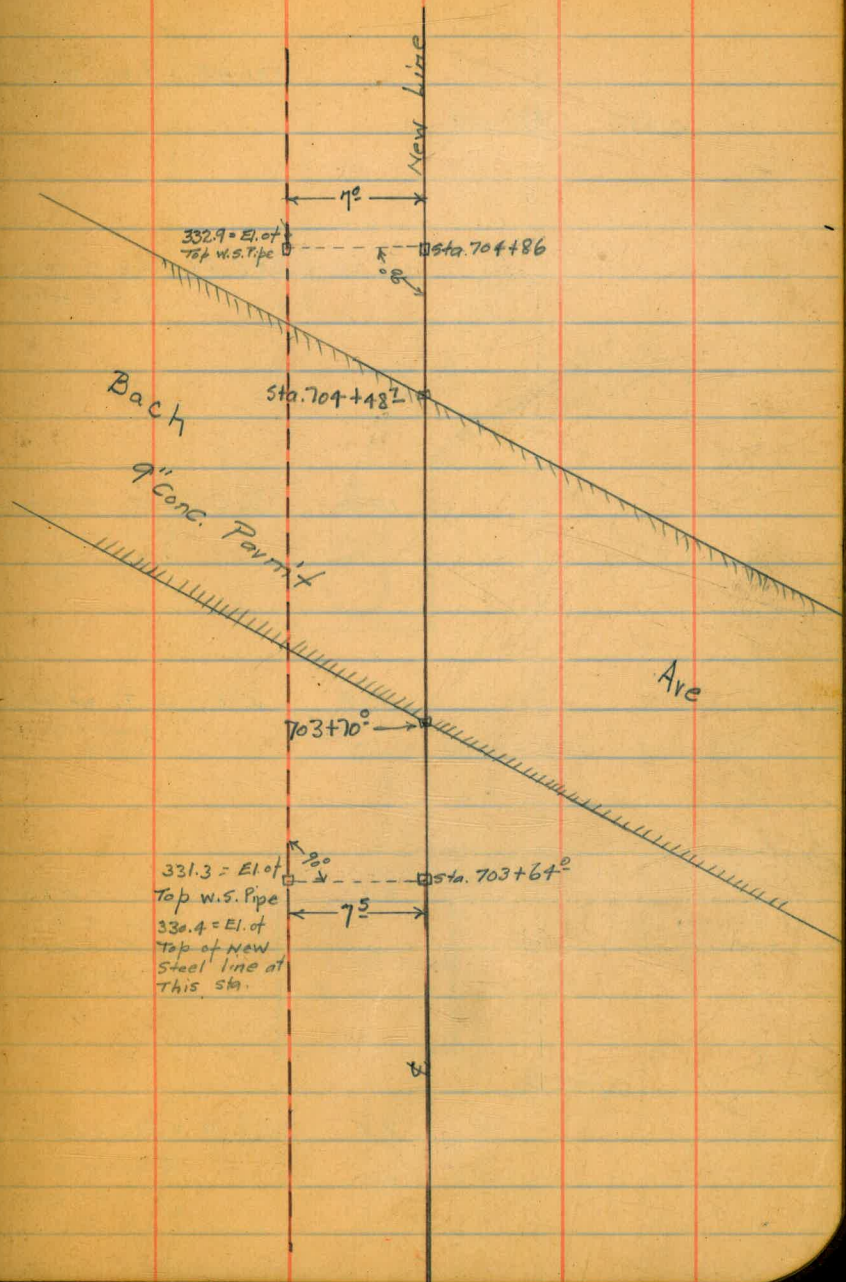 New Line
7⁰
332.9 = El. of
Top W.S. Pipe
Sta. 704+86
90°
Sta. 704+48⁷
Bach
9" Conc. Pavm't
Ave
703+70⁰
90°
331.3 = El. of
Top W.S. Pipe
Sta. 703+64⁰
7⁵
330.4 = El. of
Top of New
Steel line at
This sta.
℄